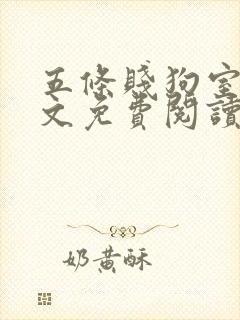 五條賤狗室
文免費閱讀
奶黃酥